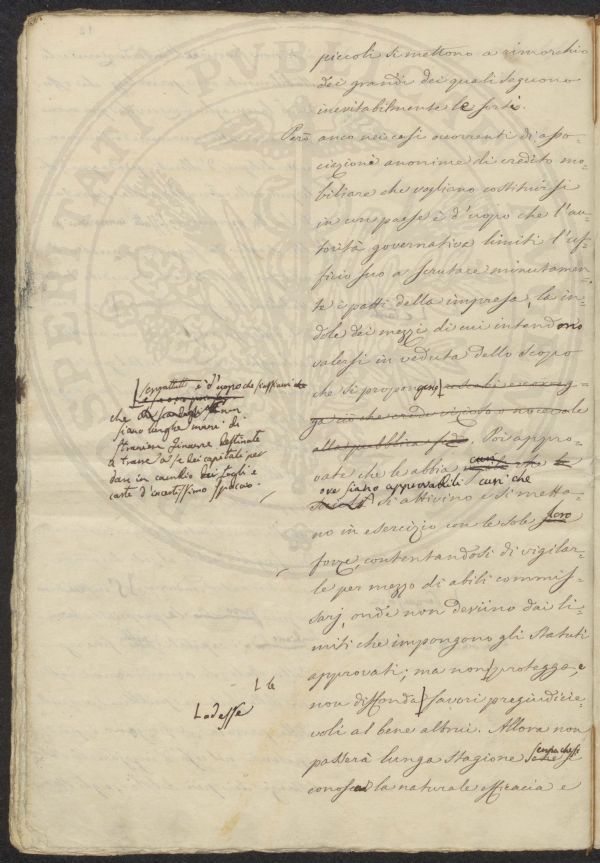 piccoli si mettono a rimorchio
dei grandi dei quali seguono
inevitabilmente le sorti.
Però anco nei casi occorrenti di asso-
ciazioni anonime di credito mo-
biliare che vogliano costituirsi
in un paese è d'uopo che l'au-
torità governativa limiti l'uf-
ficio suo a scrutare minutamen-
te i patti della impresa, la in-
dole dei mezzi di cui intendono
valersi in veduta dello scopo
che si propongono
Poi appro-
vate che le abbia
ove siano approvabili curi che
si attivino e si metta-
no in esercizio con le sole loro
forze, contentandosi di vigilar-
le per mezzo di abili commis-
sarj, onde non deviino dai li-
miti che impongono gli Statuti
approvati; ma non protegga, e
non diffonda favori pregiudicie-
voli al bene altrui. Allora non
passerà lunga stagione senza che si
conosca la naturale efficacia e
è d'uopo che
che non
siano lunghe mani di
straniere destinate
a trarre a se dei capitali per
dare in cambio dei fogli e
carte d'incertissimo
L le
Ladesse
PVBL